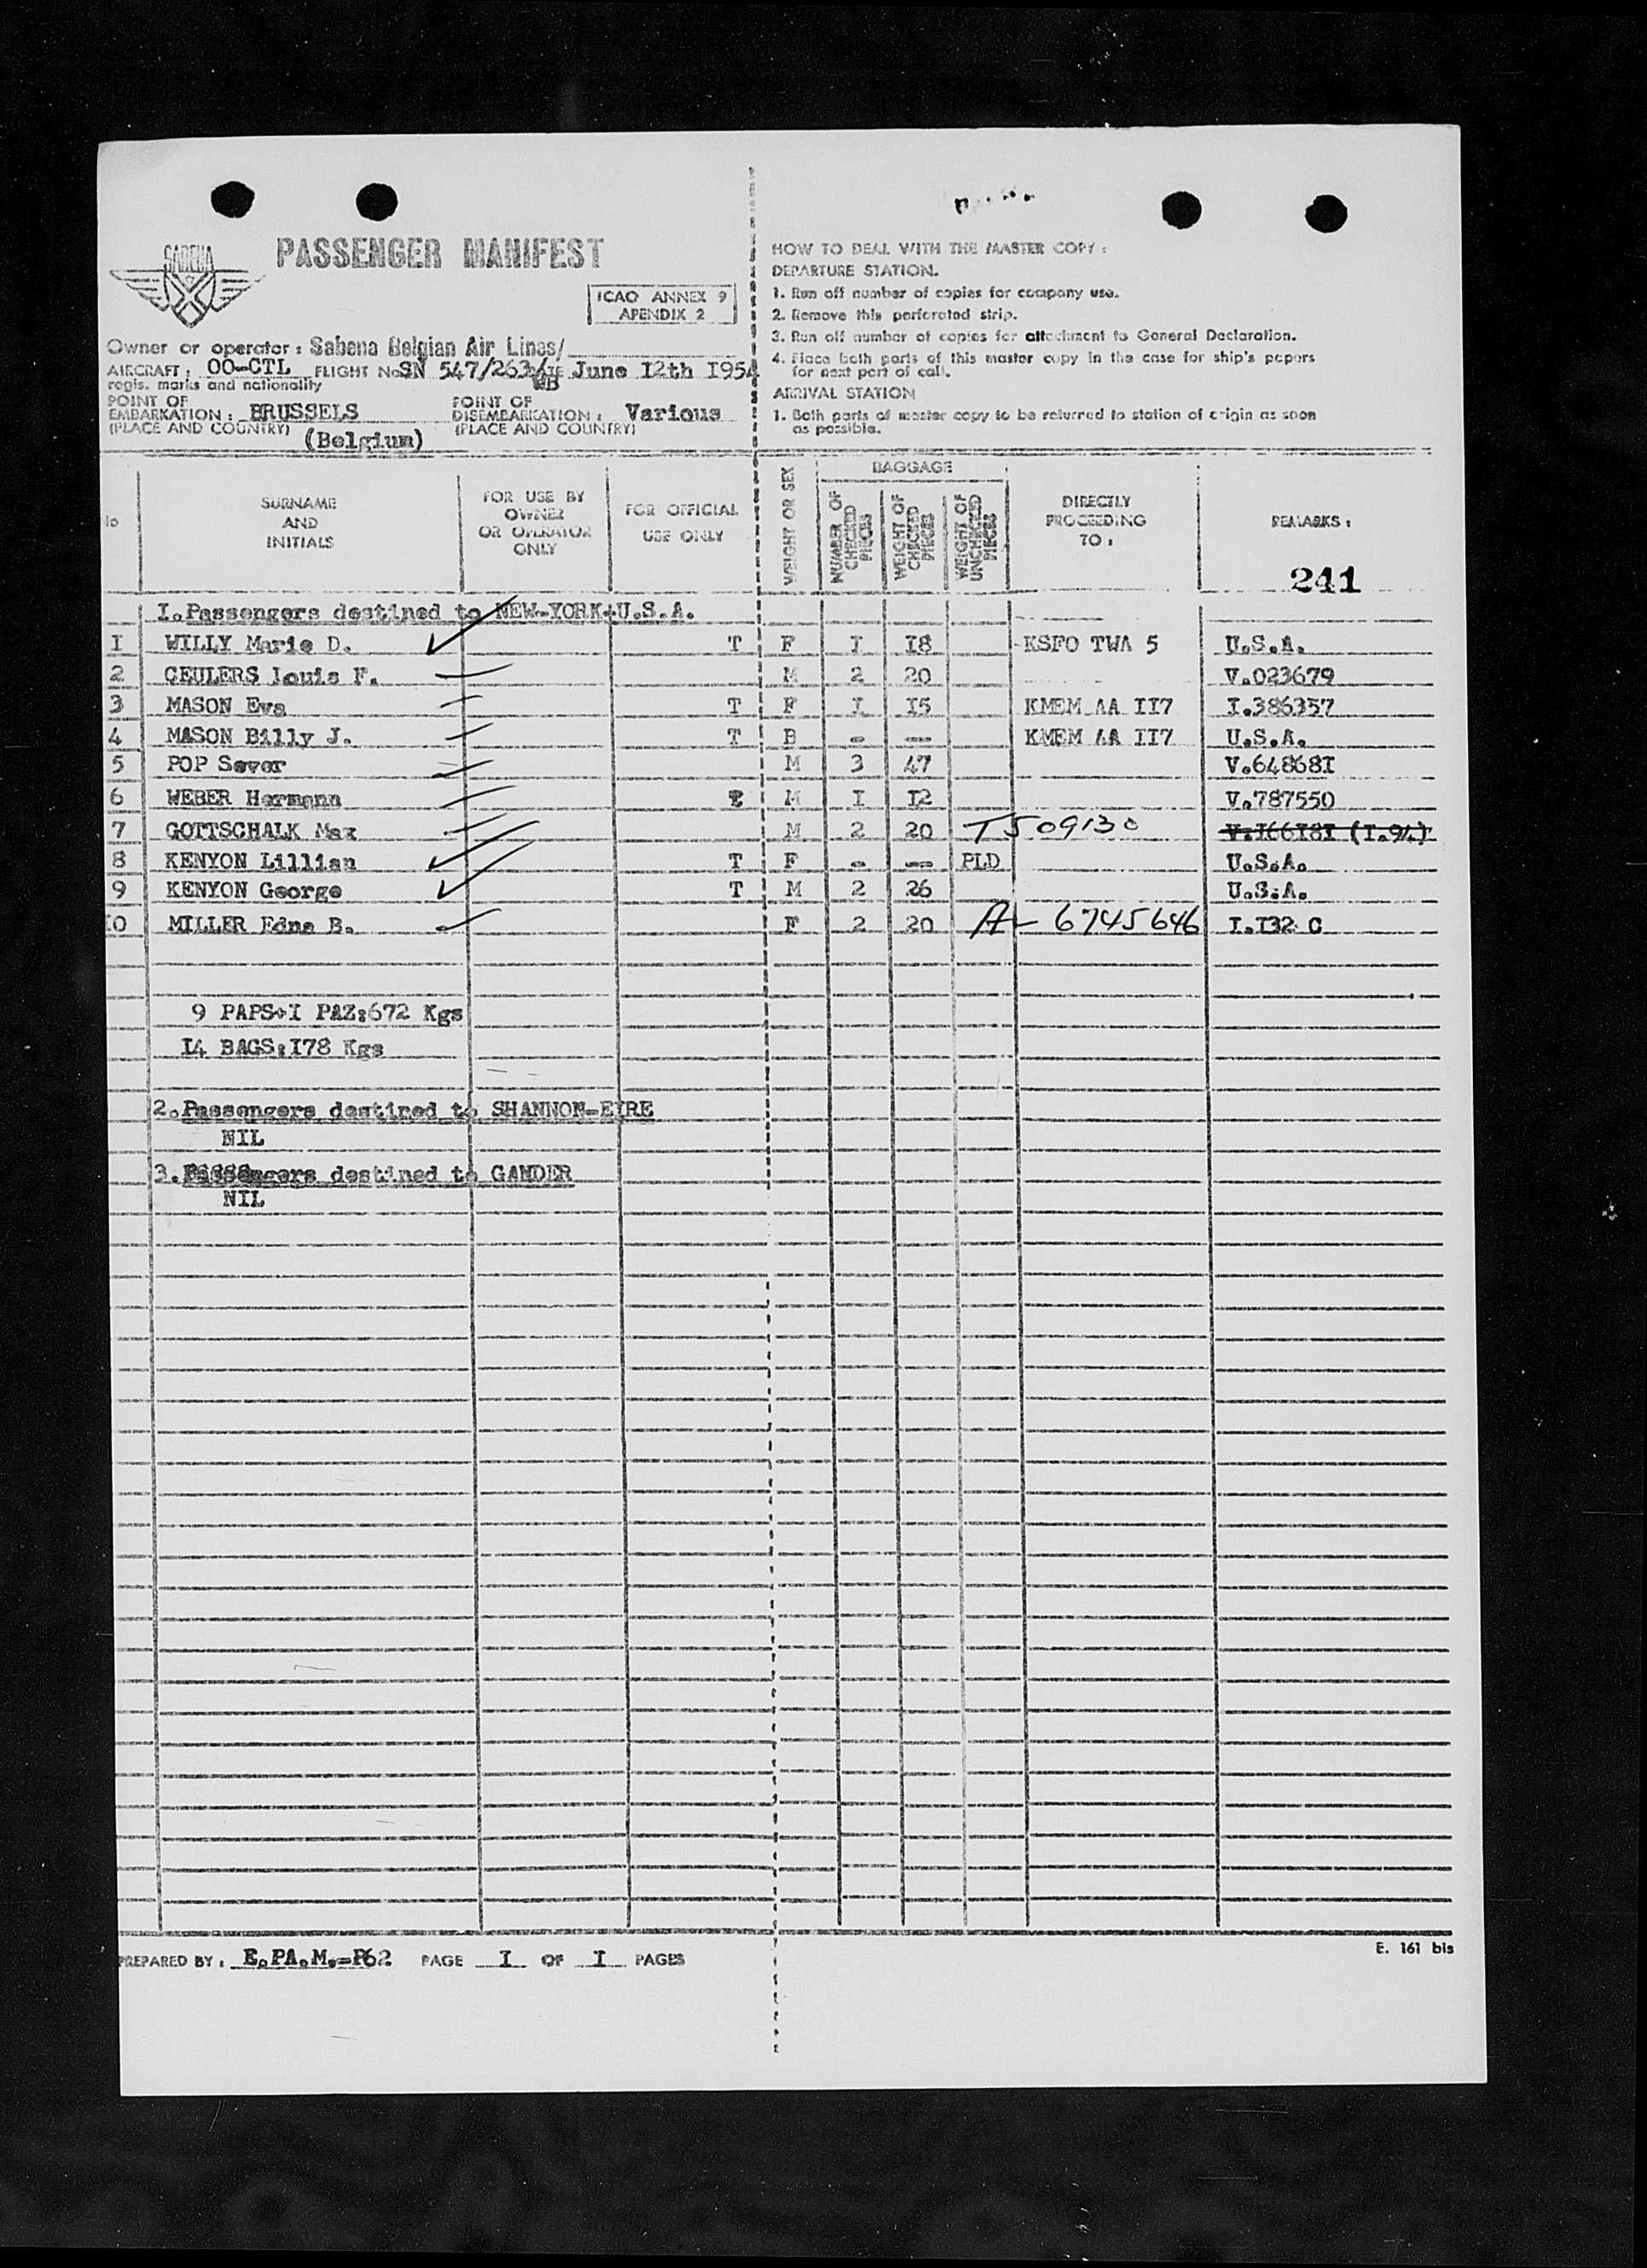 SABENA
PASSENGER MANIFEST
ICAO ANNEX 9
APENDIX 2
Owner or operator : Sabena Belgian Air Lines/
AIRCRAFT : OO-CTL FLIGHT No SN 547/263 June 12th 1954
WB
regis. marks and nationality
POINT OF
EMBARKATION : BRUSSELS
(PLACE AND COUNTRY) (Belgium)
POINT OF
DISEMBARKATION : Various
(PLACE AND COUNTRY)
HOW TO DEAL WITH THE MASTER COPY :
DEPARTURE STATION.
1. Run off number of copies for company use.
2. Remove this perforated strip.
3. Run off number of copies for attachment to General Declaration.
4. Place both parts of this master copy in the case for ship's papers
for next port of call.
ARRIVAL STATION
1. Both parts of master copy to be returned to station of origin as soon
as possible.
No
SURNAME
AND
INITIALS
FOR USE BY
OWNER
OR OPERATOR
ONLY
FOR OFFICIAL
USE ONLY
WEIGHT OR SEX
BAGGAGE
NUMBER OF
CHECKED
PIECES
WEIGHT OF
CHECKED
PIECES
WEIGHT OF
UNCHECKED
PIECES
DIRECTLY
PROCEEDING
TO :
REMARKS :
241
I. Passengers destined to NEW-YORK-U.S.A.
I WILLY Marie D. T F I I8 KSFO TWA 5 U.S.A.
2 GEULERS Louis F. M 2 20 V.023679
3 MASON Eva T F I I5 KMEM AA II7 I.386357
4 MASON Billy J. T B - -- KMEM AA II7 U.S.A.
5 POP Sever M 3 47 V.64868I
6 WEBER Hermann T M I I2 V.787550
7 GOTTSCHALK Max M 2 20 T509130 V.I66I8I (I.94)
8 KENYON Lillian T F - -- PLD U.S.A.
9 KENYON George T M 2 26 U.S.A.
10 MILLER Edna B. F 2 20 A- 6745646 I.I32 C
9 PAPS+I PAZ:672 Kgs
I4 BAGS:I78 Kgs
2. Passengers destined to SHANNON-EIRE
NIL
3. Passengers destined to GANDER
NIL
PREPARED BY : E.PA.M.-P62 PAGE I OF I PAGES
E. 161 bis